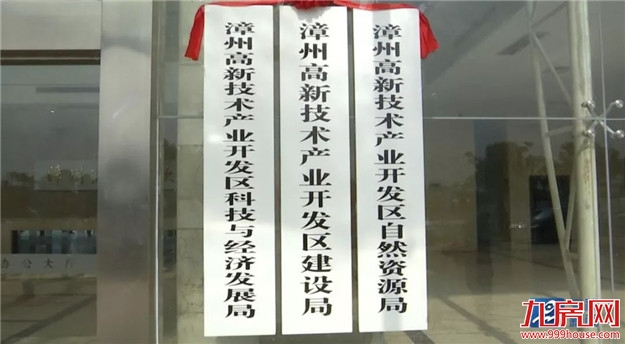 漳州高新技术产业开发区科技与经济发展局
漳州高新技术产业开发区建设局
漳州高新技术产业开发区自然资源局
办公大厅
九房网
www.999house.com